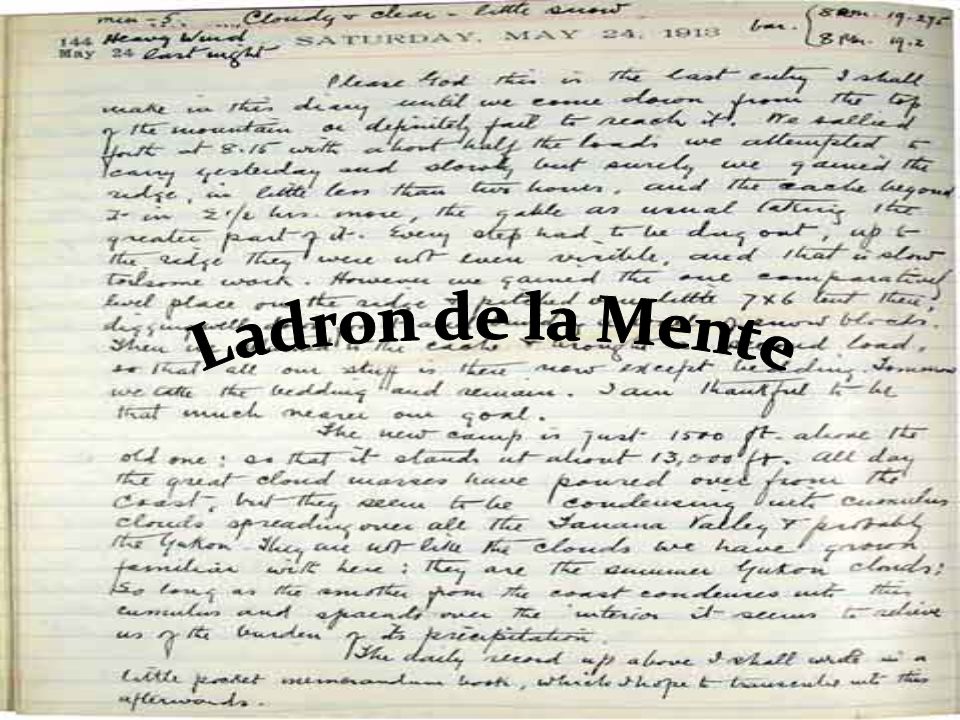 min - 5. .... Cloudy & clear - little snow
bar. { 8 AM. 19.275
144 Heavy Wind SATURDAY, MAY 24, 1913
May 24 last night
8 PM. 19.2
Please God this is the last entry I shall
make in this diary until we come down from the top
of the mountain or definitely fail to reach it. We sallied
forth at 8.15 with about half the loads we attempted to
carry yesterday and slowly but surely we gained the
ridge, in little less than two hours, and the cache beyond
it in 2 1/2 hrs. more, the gable as usual taking the
greater part of it. Every step had to be dug out, up to
the ridge they were not even visible, and that is slow
toilsome work. However we gained the one comparatively
level place on the ridge & pitched our little 7x6 tent there,
digging snow blocks.
Ladron de la Mente
Then the cache & brought load,
so that all our stuff is there now except bedding. Tomorrow
we take the bedding and remain. I am thankful to be
that much nearer our goal.
The new camp is just 1500 ft. above the
old one: so that it stands at about 13,000 ft. All day
the great cloud masses have poured over from the
coast, but they seem to be condensing into cumulus
clouds spreading over all the Tanana Valley & probably
the Yukon. They are not like the clouds we have grown
familiar with here: they are the summer Yukon clouds:
So long as the smother from the coast condenses into this
cumulus and spreads over the interior it seems to relieve
us of the burden of its precipitation.
The daily record up above I shall write in a
little pocket memorandum book, which I hope to transcribe into this
afterwards.